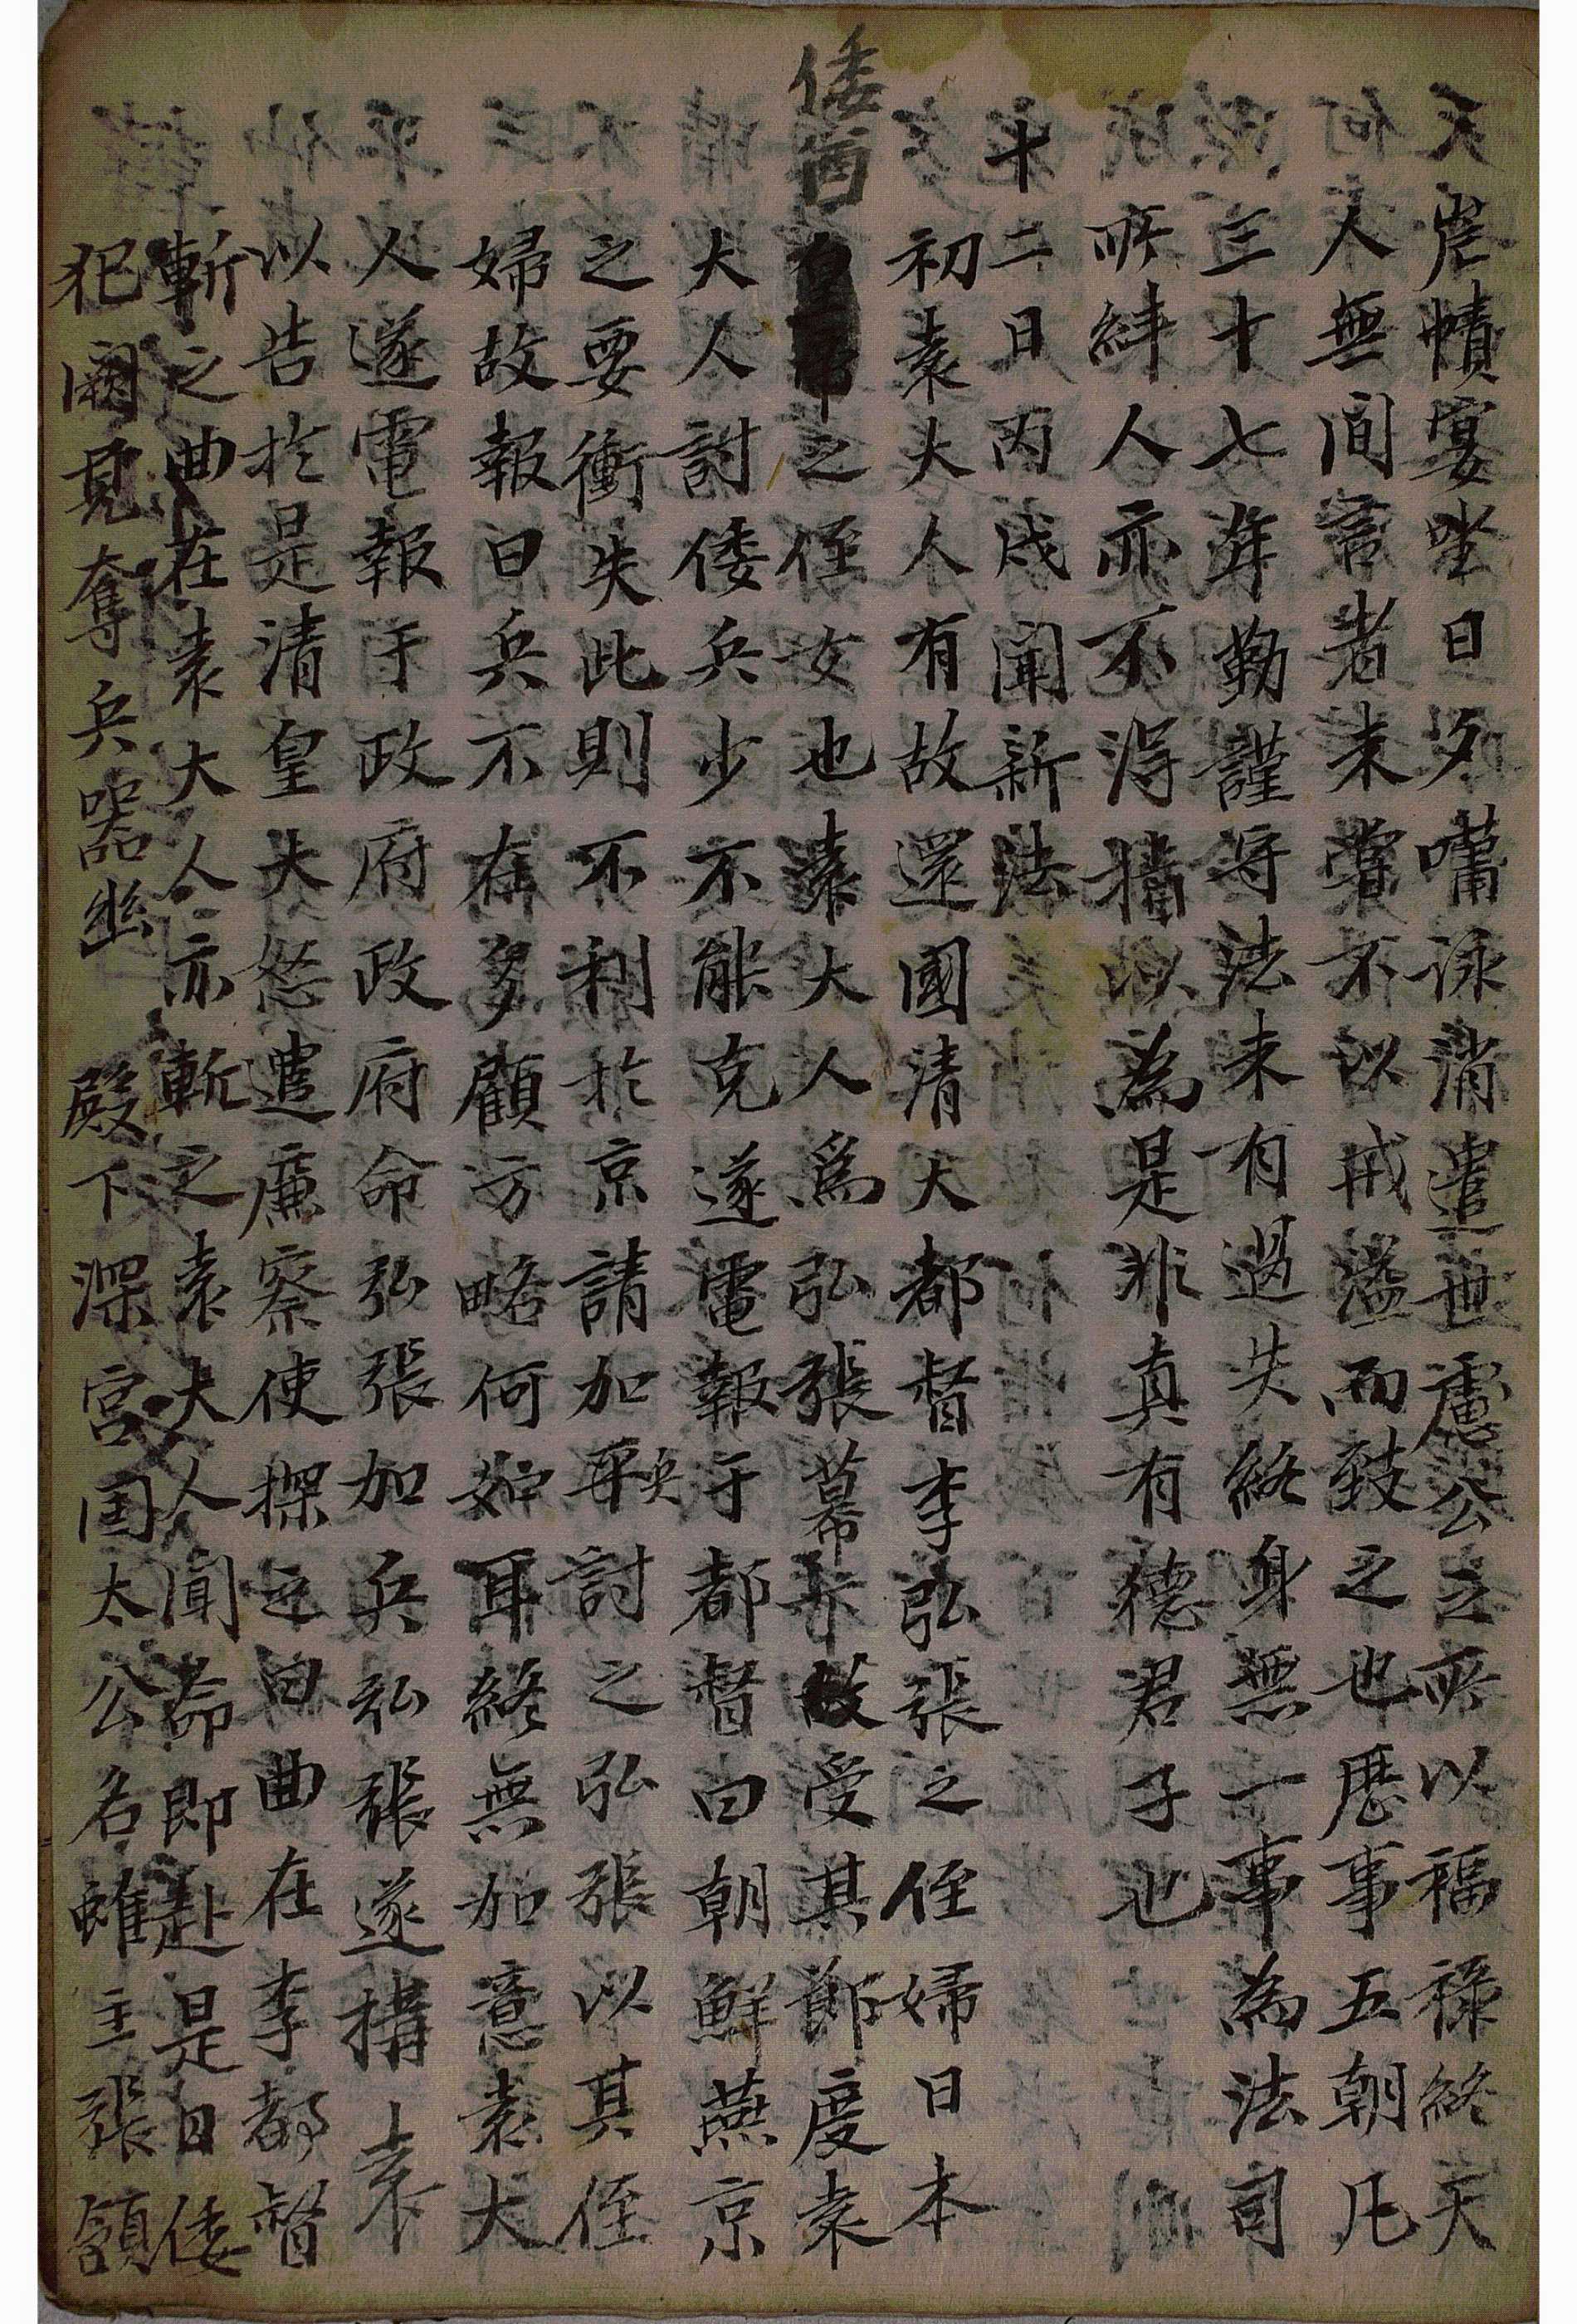 天岸幘宴坐日夕嘯詠消遣世慮公之所以福祿終天
人無間言者未嘗不以戒溢而致之也歷事五朝凡
三十七年勤謹守法未有過失終身無一事為法司
所絆人亦不得描以為是非真有德君子也
十二日丙戌聞新法
初袁大人有故還國清大都督李弘張之侄婦日本
倭酋之侄女也袁大人爲弘張幕下故受其節度袁
大人討倭兵少不能克遂電報于都督曰朝鮮燕京
之要衝失此則不利於京請加兵討之弘張以其侄
婦故報曰兵不在多顧方略何如耳終無加意袁大
人遂電報于政府政府命弘張加兵弘張遂搆袁
以告於是清皇大怒遣廉察使探之曰曲在李都督
斬之曲在袁大人亦斬之袁大人聞命即赴是日倭
犯闕見奪兵器幽 殿下深宮国太公名雖主張額